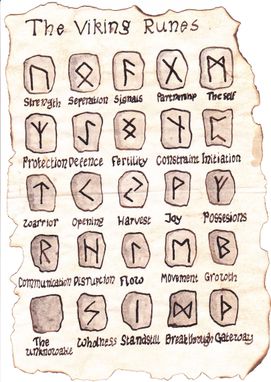 The Viking Runes
ᚢ ᛟ ᚨ ᚷ ᛗ
Strength Seperation Signals Partnership The self
ᛉ ᛇ ᛜ ᚾ ᛈ
Protection Defence Fertility Constraint Initiation
ᛏ ᚲ ᛃ ᚹ ᚠ
Warrior Opening Harvest Joy Possesions
ᚱ ᚺ ᛚ ᛖ ᛒ
Communication Disruption Flow Movement Growth
ᛊ ᛁ ᛞ ᚦ
The Wholness Standstill Breakthrough Gateway
unknowable